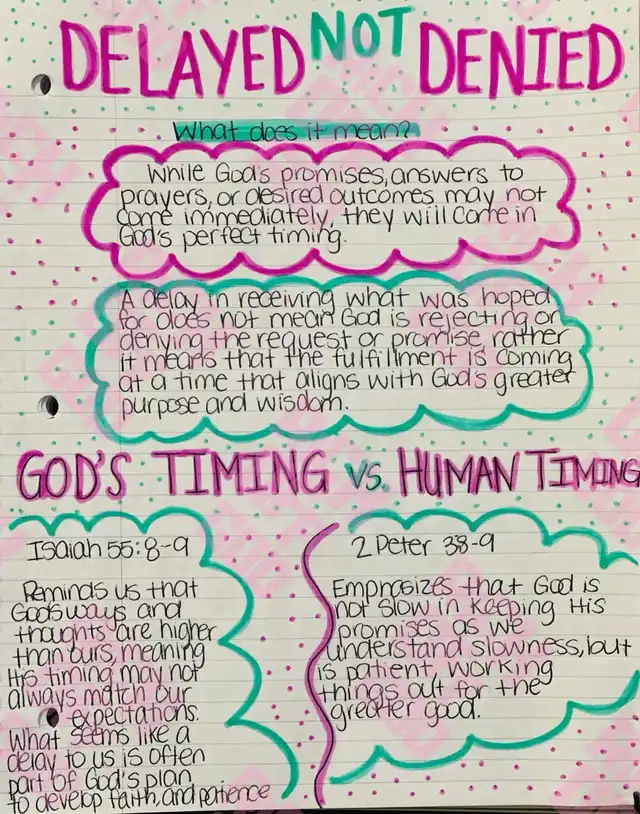 DELAYED NOT DENIED
What does it mean?
While God's promises, answers to
prayers, or desired outcomes may not
come immediately, they will come in
God's perfect timing.
A delay in receiving what was hoped
for does not mean God is rejecting or
denying the request or promise rather
it means that the fulfillment is coming
at a time that aligns with God's greater
purpose and wisdom.
GOD'S TIMING VS. HUMAN TIMING
Isaiah 55:8-9
Reminds us that
God's ways and
thoughts are higher
than ours, meaning
His timing may not
always match our
expectations.
What seems like a
delay to us is often
part of God's plan
to develop faith, and patience
2 Peter 3:8-9
Emphasizes that God is
not slow in keeping His
promises as we
understand slowness, but
is patient working
things out for the
greater good.